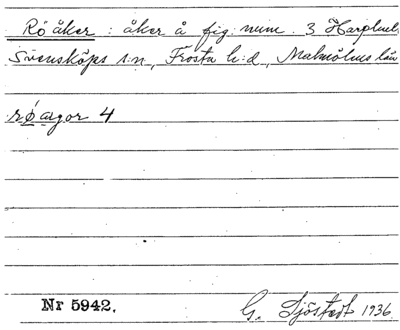 Röåker : åker å fig. num. 3 Harphult
Svensköps s:n, Frosta h:d, Malmöhus län
røagor 4
Nr 5942. G. Sjöstedt 1936.